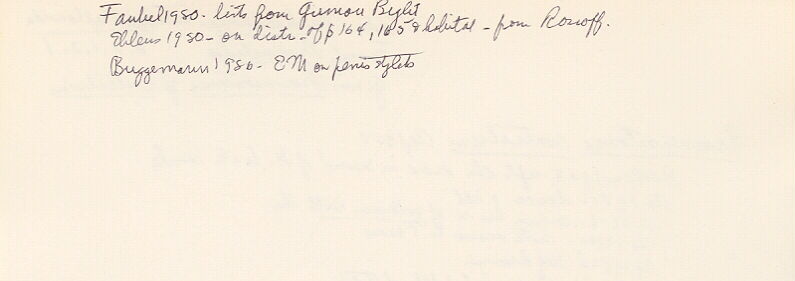 Faubel 1980 - lists from German Bight
Ehlers 1980 - on distr. - off p 164, 165 & habitat - from Roscoff.
Brüggemann 1986 - EM on penis stylets